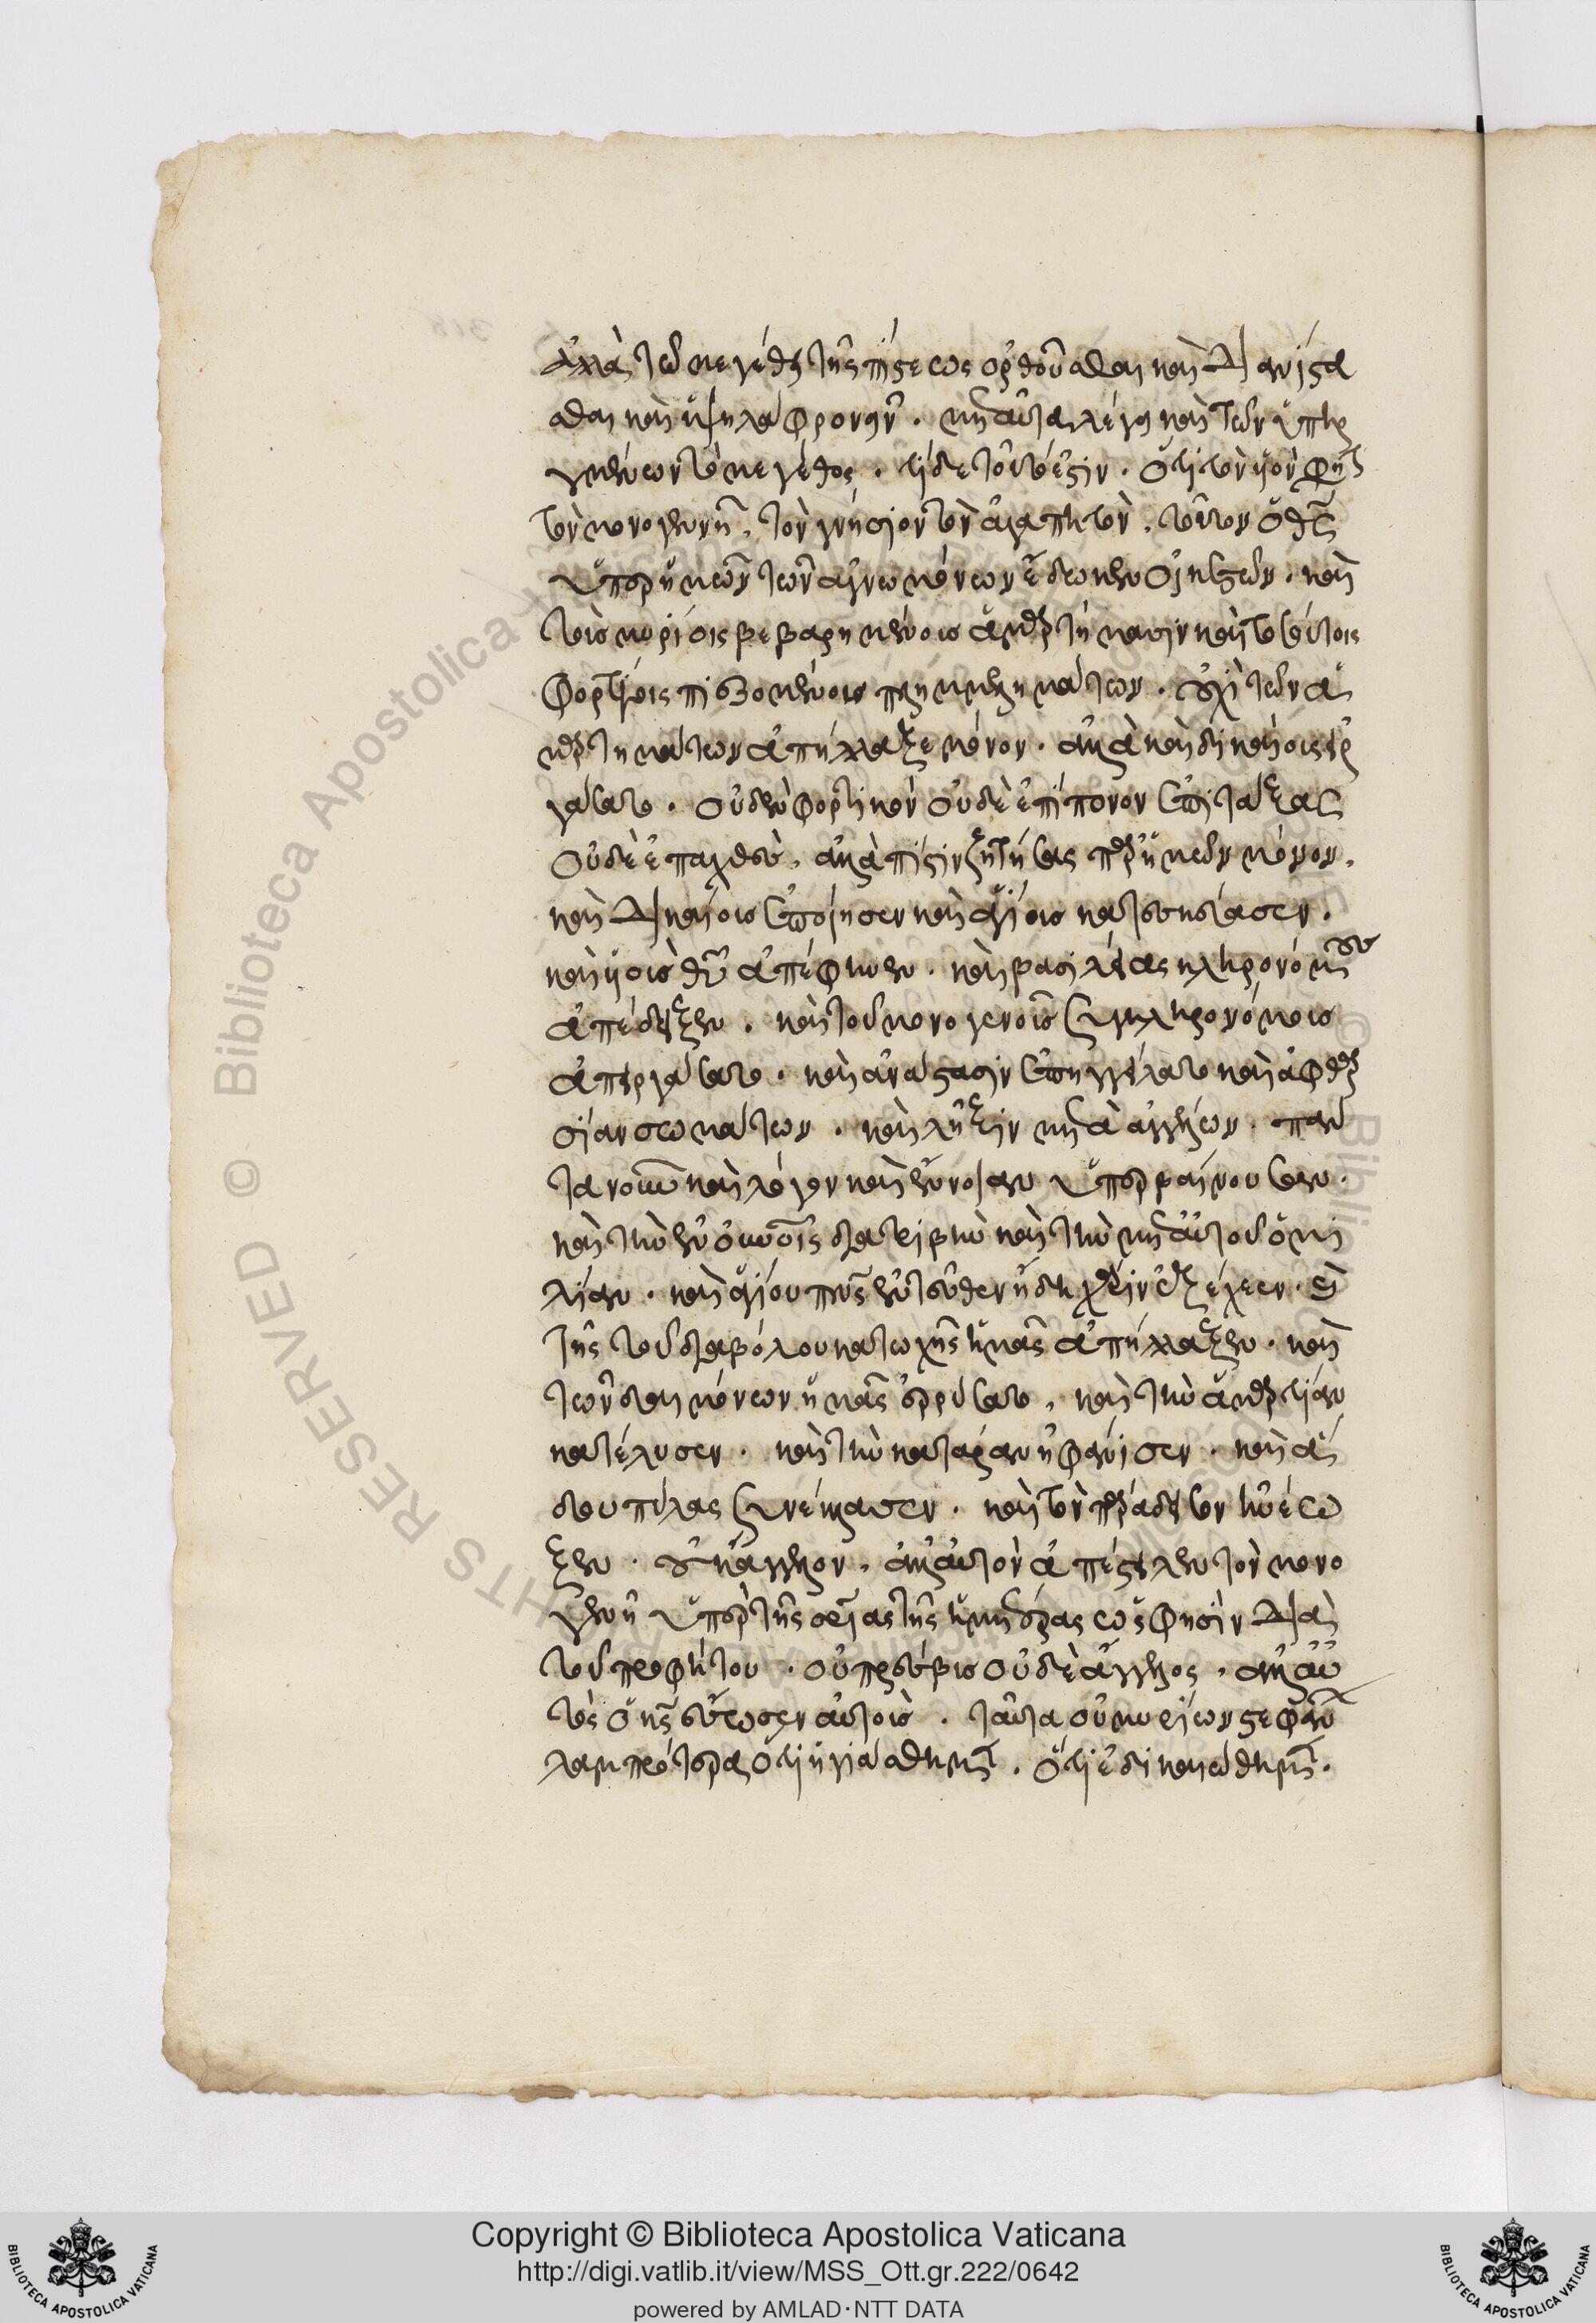 ἀλλὰ τῷ μεγέθει τῆς πίστεως ὀρθοῦσθαι καὶ διανίστα
σθαι καὶ ὑψηλὰ φρονεῖν. μετὰ ταῦτα λέγει καὶ τῶν ὑπηρ
γμένων τὸ μέγεθος. τί δὲ τοῦτό ἐστιν. ὅτι τὸν υἱὸν φησὶ
τὸν μονογενῆ, τὸν γνήσιον τὸν ἀγαπητόν, τοῦτον ὁ θεὸς
ὑπὲρ ἡμῶν τῶν ἀγνωμόνων ἔδωκεν οἰκετῶν. καὶ
τοὺς μυρίοις βεβαρημένους ἁμαρτήμασιν καὶ τοσούτοις
φορτίοις πιεζομένους πλημμελημάτων. οὐχὶ τῶν ἁ
μαρτημάτων ἀπήλλαξε μόνον. ἀλλὰ καὶ δικαίους εἰρ
γάσατο. οὐδὲν φορτικὸν οὐδὲ ἐπίπονον ἐπιτάξας
οὐδὲ ἐπαχθές, ἀλλὰ πίστιν ζητήσας παρ' ἡμῶν μόνον,
καὶ δικαίους ἐποίησεν καὶ ἁγίους κατεσκεύασεν.
καὶ υἱοὺς θεοῦ ἀπέφηνεν. καὶ βασιλείας κληρονόμους
ἀπέδειξεν. καὶ τοῦ μονογενοῦς συγκληρονόμους
ἀπειργάσατο. καὶ ἀνάστασιν ἐπηγγείλατο καὶ ἀφθαρ
σίαν σωμάτων. καὶ λῆξιν μετὰ ἀγγέλων. πάν
τα νοῦν καὶ λόγον καὶ ἔννοιαν ὑπερβαίνουσαν.
καὶ τὴν ἐν οὐρανοῖς διατριβὴν καὶ τὴν μετ' αὐτοῦ ὁμι
λίαν. καὶ ἁγίου πνεύματος ἐντεῦθεν ἤδη χάριν ἐξέχεεν.
τῆς τοῦ διαβόλου κατοχῆς ἡμᾶς ἀπήλλαξεν. καὶ
τῶν δαιμόνων ἡμᾶς ἐρρύσατο, καὶ τὴν ἁμαρτίαν
κατέλυσεν. καὶ τὴν κατάραν ἠφάνισεν. καὶ ᾅ
δου πύλας συνέκλασεν. καὶ τὸν παράδεισον ἠνέῳ
ξεν. οὐκ ἄγγελον, ἀλλ' αὐτὸν ἀπέστειλεν τὸν μονο
γενῆ ὑπὲρ τῆς σωτηρίας τῆς ἡμετέρας ὥς φησὶν διὰ
τοῦ προφήτου. οὐ πρέσβυς οὐδὲ ἄγγελος, ἀλλ' αὐ
τὸς ὁ κύριος ἔσωσεν αὐτούς. ταῦτα οὐ μυρίων στεφάνων
λαμπρότερα ὅτι ἡγιάσθημεν. ὅτι ἐδικαιώθημεν.